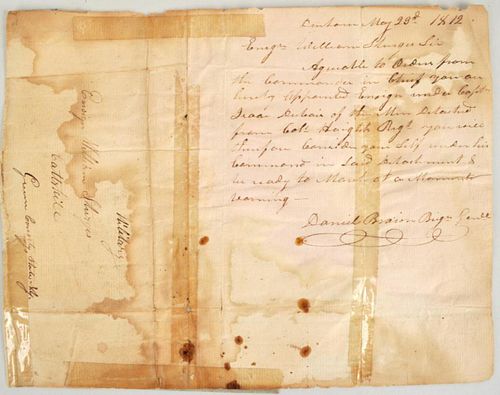 Durham May 23d. 1812.
Ensgn William Sturges Sir
Agreable to Orders from
the Commander in Chief you are
hereby Appointed Ensign under Capt
Isaac Dubois of the Men Detached
from Colo Haight Regt you will
therefore Consider your Self under his
Command in Said Detachment &
be ready to March at a Moments
warning —
Daniel Brown Brigr Genl
Military
Ensign William Sturges
Cattskille
Greene County State N.Y.